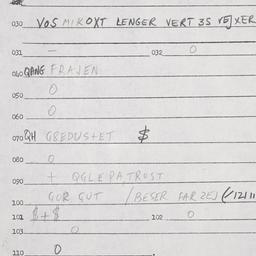 030 VOS MIKOXT LENGER VERT 3S VEJXER
031 — 032 0
040 QANG FRAJEN
050 0
060 0
070 QH GREDUSTET $
080 0
090 + QGLE PATROST
100 GOR GUT / BESER FAR ZEJ (/12111
101 $+$ 102 0
103 0
110 0